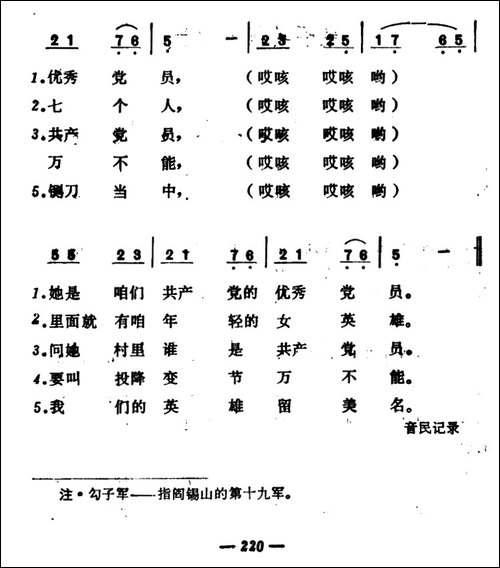 2 1 7 6 | 5 — | 2 3 2 5 | 1 7 6 5 |
1.优秀 党 员，（哎咳 哎咳 哟）
2.七 个 人，（哎咳 哎咳 哟）
3.共产 党 员，（哎咳 哎咳 哟）
万 不 能，（哎咳 哎咳 哟）
5.铡刀 当 中，（哎咳 哎咳 哟）
5 5 2 3 | 2 1 7 6 | 2 1 7 6 | 5 — ‖
1.她是 咱们 共产 党的 优秀 党 员。
2.里面就 有咱 年 轻的 女 英 雄。
3.问她 村里 谁 是 共产 党 员。
4.要叫 投降 变 节 万 不 能。
5.我 们的 英 雄 留 美 名。
音民记录
注·勾子军——指阎锡山的第十九军。
— 220 —